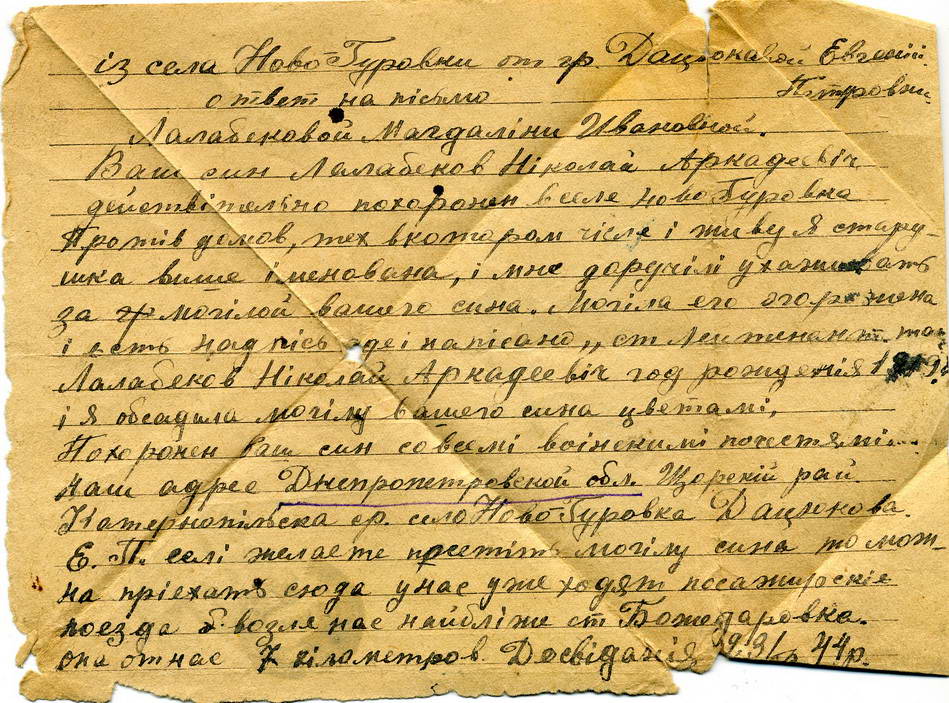 із села Ново Гуровки от гр. Дацюковой Евгении
Петровни
ответ на пісьмо
Лалабековой Магдаліни Ивановной.
Ваш син Лалабеков Ніколай Аркадеевіч
действітельно похоронен вселе ново Гуровка
Протів домов, тех вкотором чісле і живу я стару-
шка више іменована, і мне доручілі ухаживать
за могілой вашего сина. Могіла его огорожена
і есть надпісь где і напісано „ст Лентенант
Лалабеков Ніколай Аркадеевіч год рожденія
і я обсадила могілу вашего сина цветамі,
Похоронен Ваш син совсемі воінскимі почестямі
наш адрес Днепропетровской обл. Щорскій рай
Катернопільска ср. село Ново Гуровка Дацюкова.
Е. П. еслі желаете посетіть могілу сина то мож-
на пріехать сюда унас уже ходят посажирскіе
поезда возля нас найбліже ст Божедаровка.
она отнас 7 кілометров. Досвіданія 44 р.